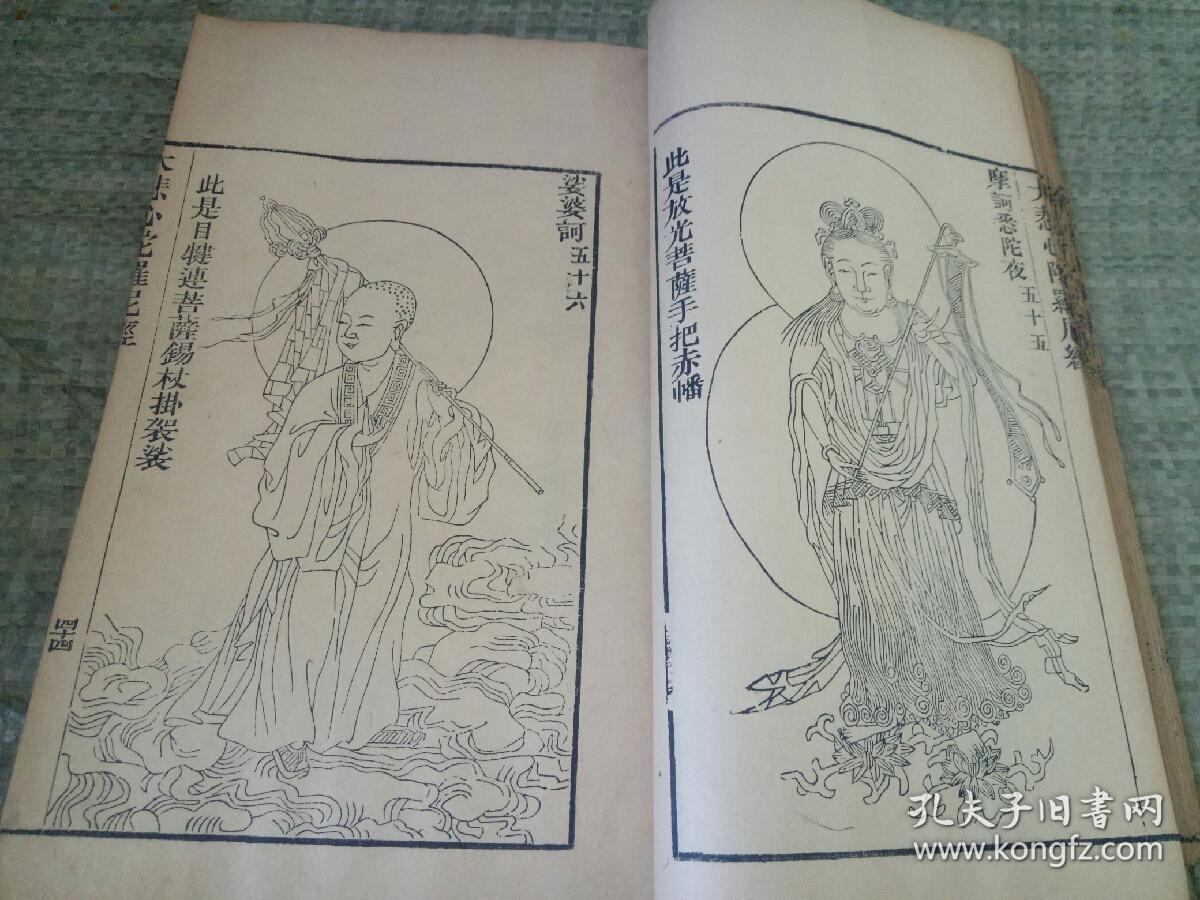 摩訶悉陀夜五十五
此是放光菩薩手把赤幡
娑婆訶五十六
此是目犍連菩薩錫杖掛袈裟
大悲心陀羅尼經
四十四
孔夫子旧書网
www.kongfz.com